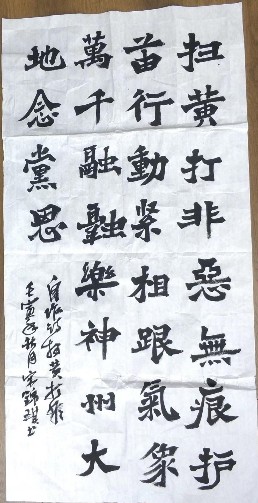 扫黄打非惡無痕护
苗行動紧相跟氣象
萬千融融樂神州大
地念黨恩
自作诗扫黄打非
壬寅秋月宋錦书